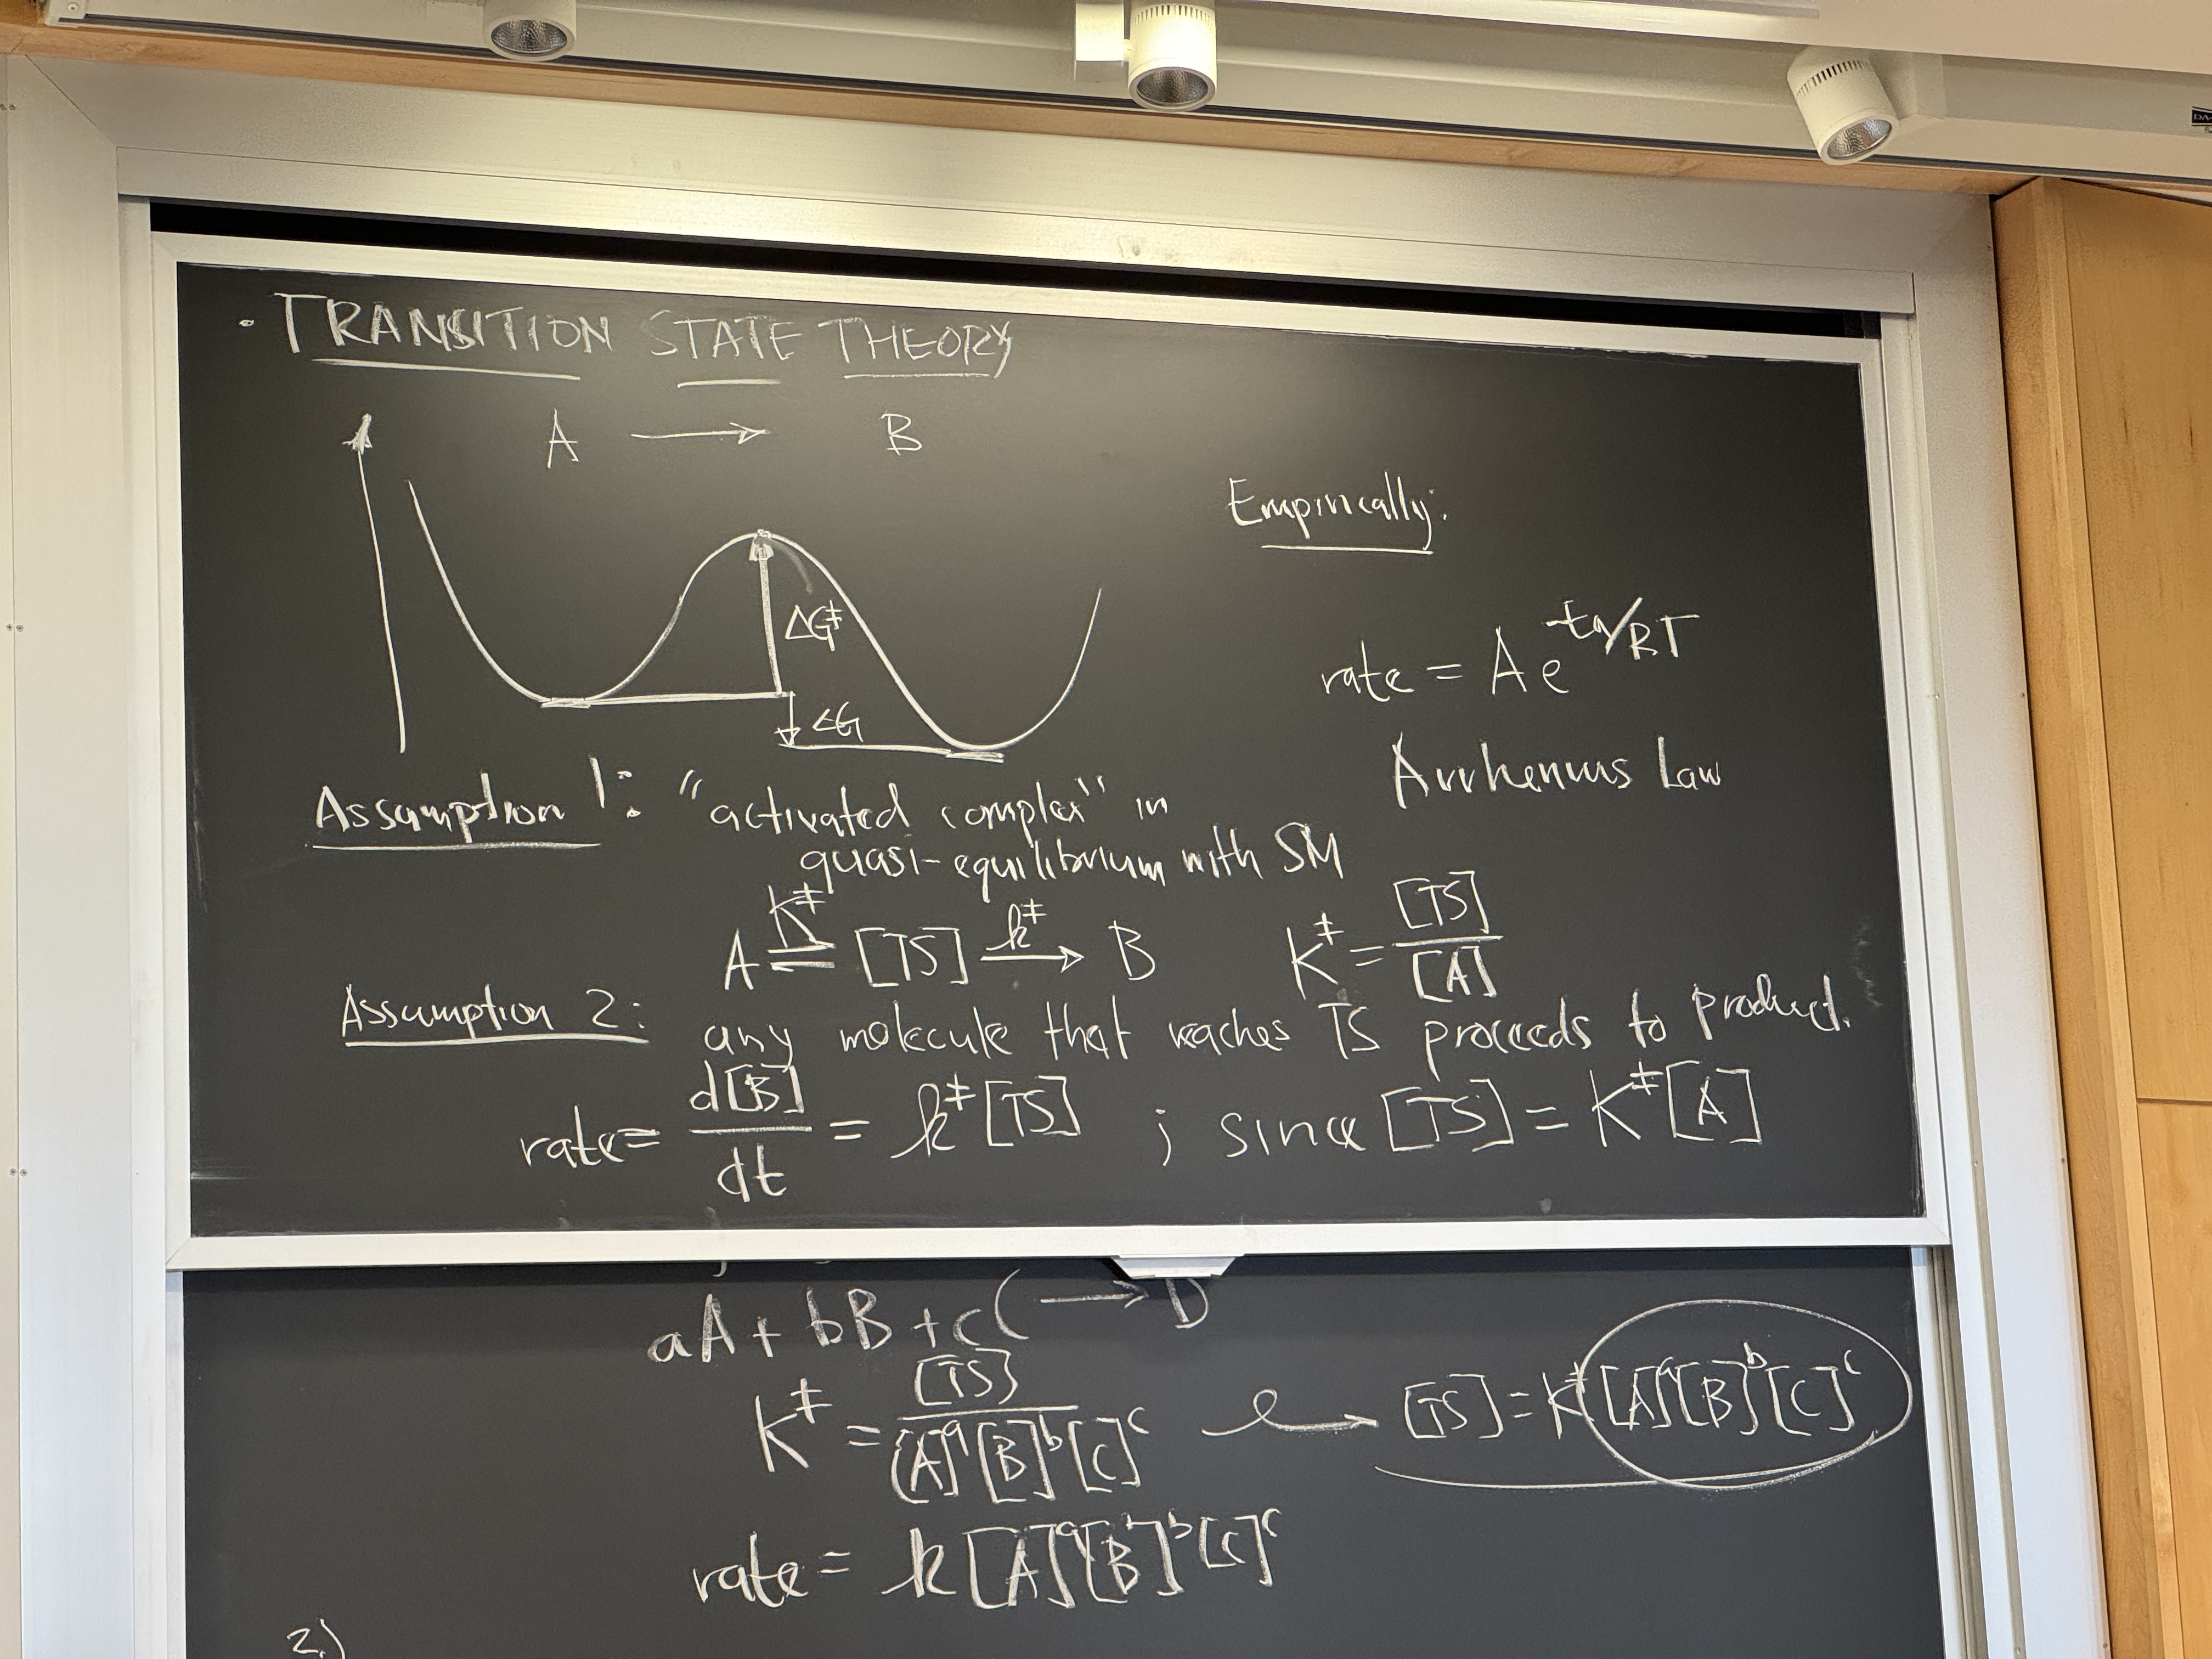 · TRANSITION STATE THEORY
A → B
ΔG‡
ΔG
Empirically:
rate = A e^-Ea/RT
Arrhenius Law
Assumption 1: "activated complex" in
quasi-equilibrium with SM
A ⇌ K‡ [TS] → k‡ B K‡ = [TS]/[A]
Assumption 2: any molecule that reaches TS proceeds to product.
rate = d[B]/dt = k‡[TS] ; since [TS] = K‡[A]
aA + bB + cC → D
K‡ = [TS]/[A]^a[B]^b[C]^c → [TS] = K‡[A]^a[B]^b[C]^c
rate = k[A]^a[B]^b[C]^c
2.)